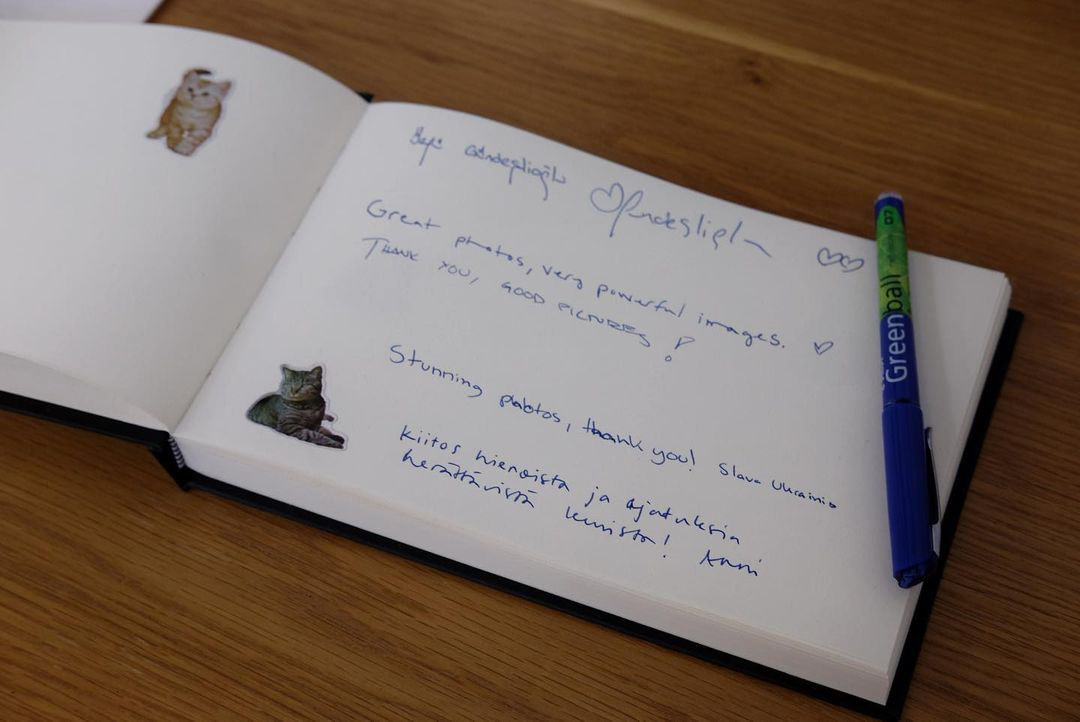 Gündeşlioğlu
Great photos, very powerful images.
THANK YOU, GOOD PICTURES!
Stunning photos, thank you! Slava Ukraini
Kiitos hienoista ja ajatuksia
herättävistä kuvista! Anni
Greenball
07